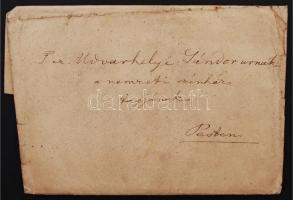 Udvarhelyi Sándor urnak
a nemzeti szinház
Pesten